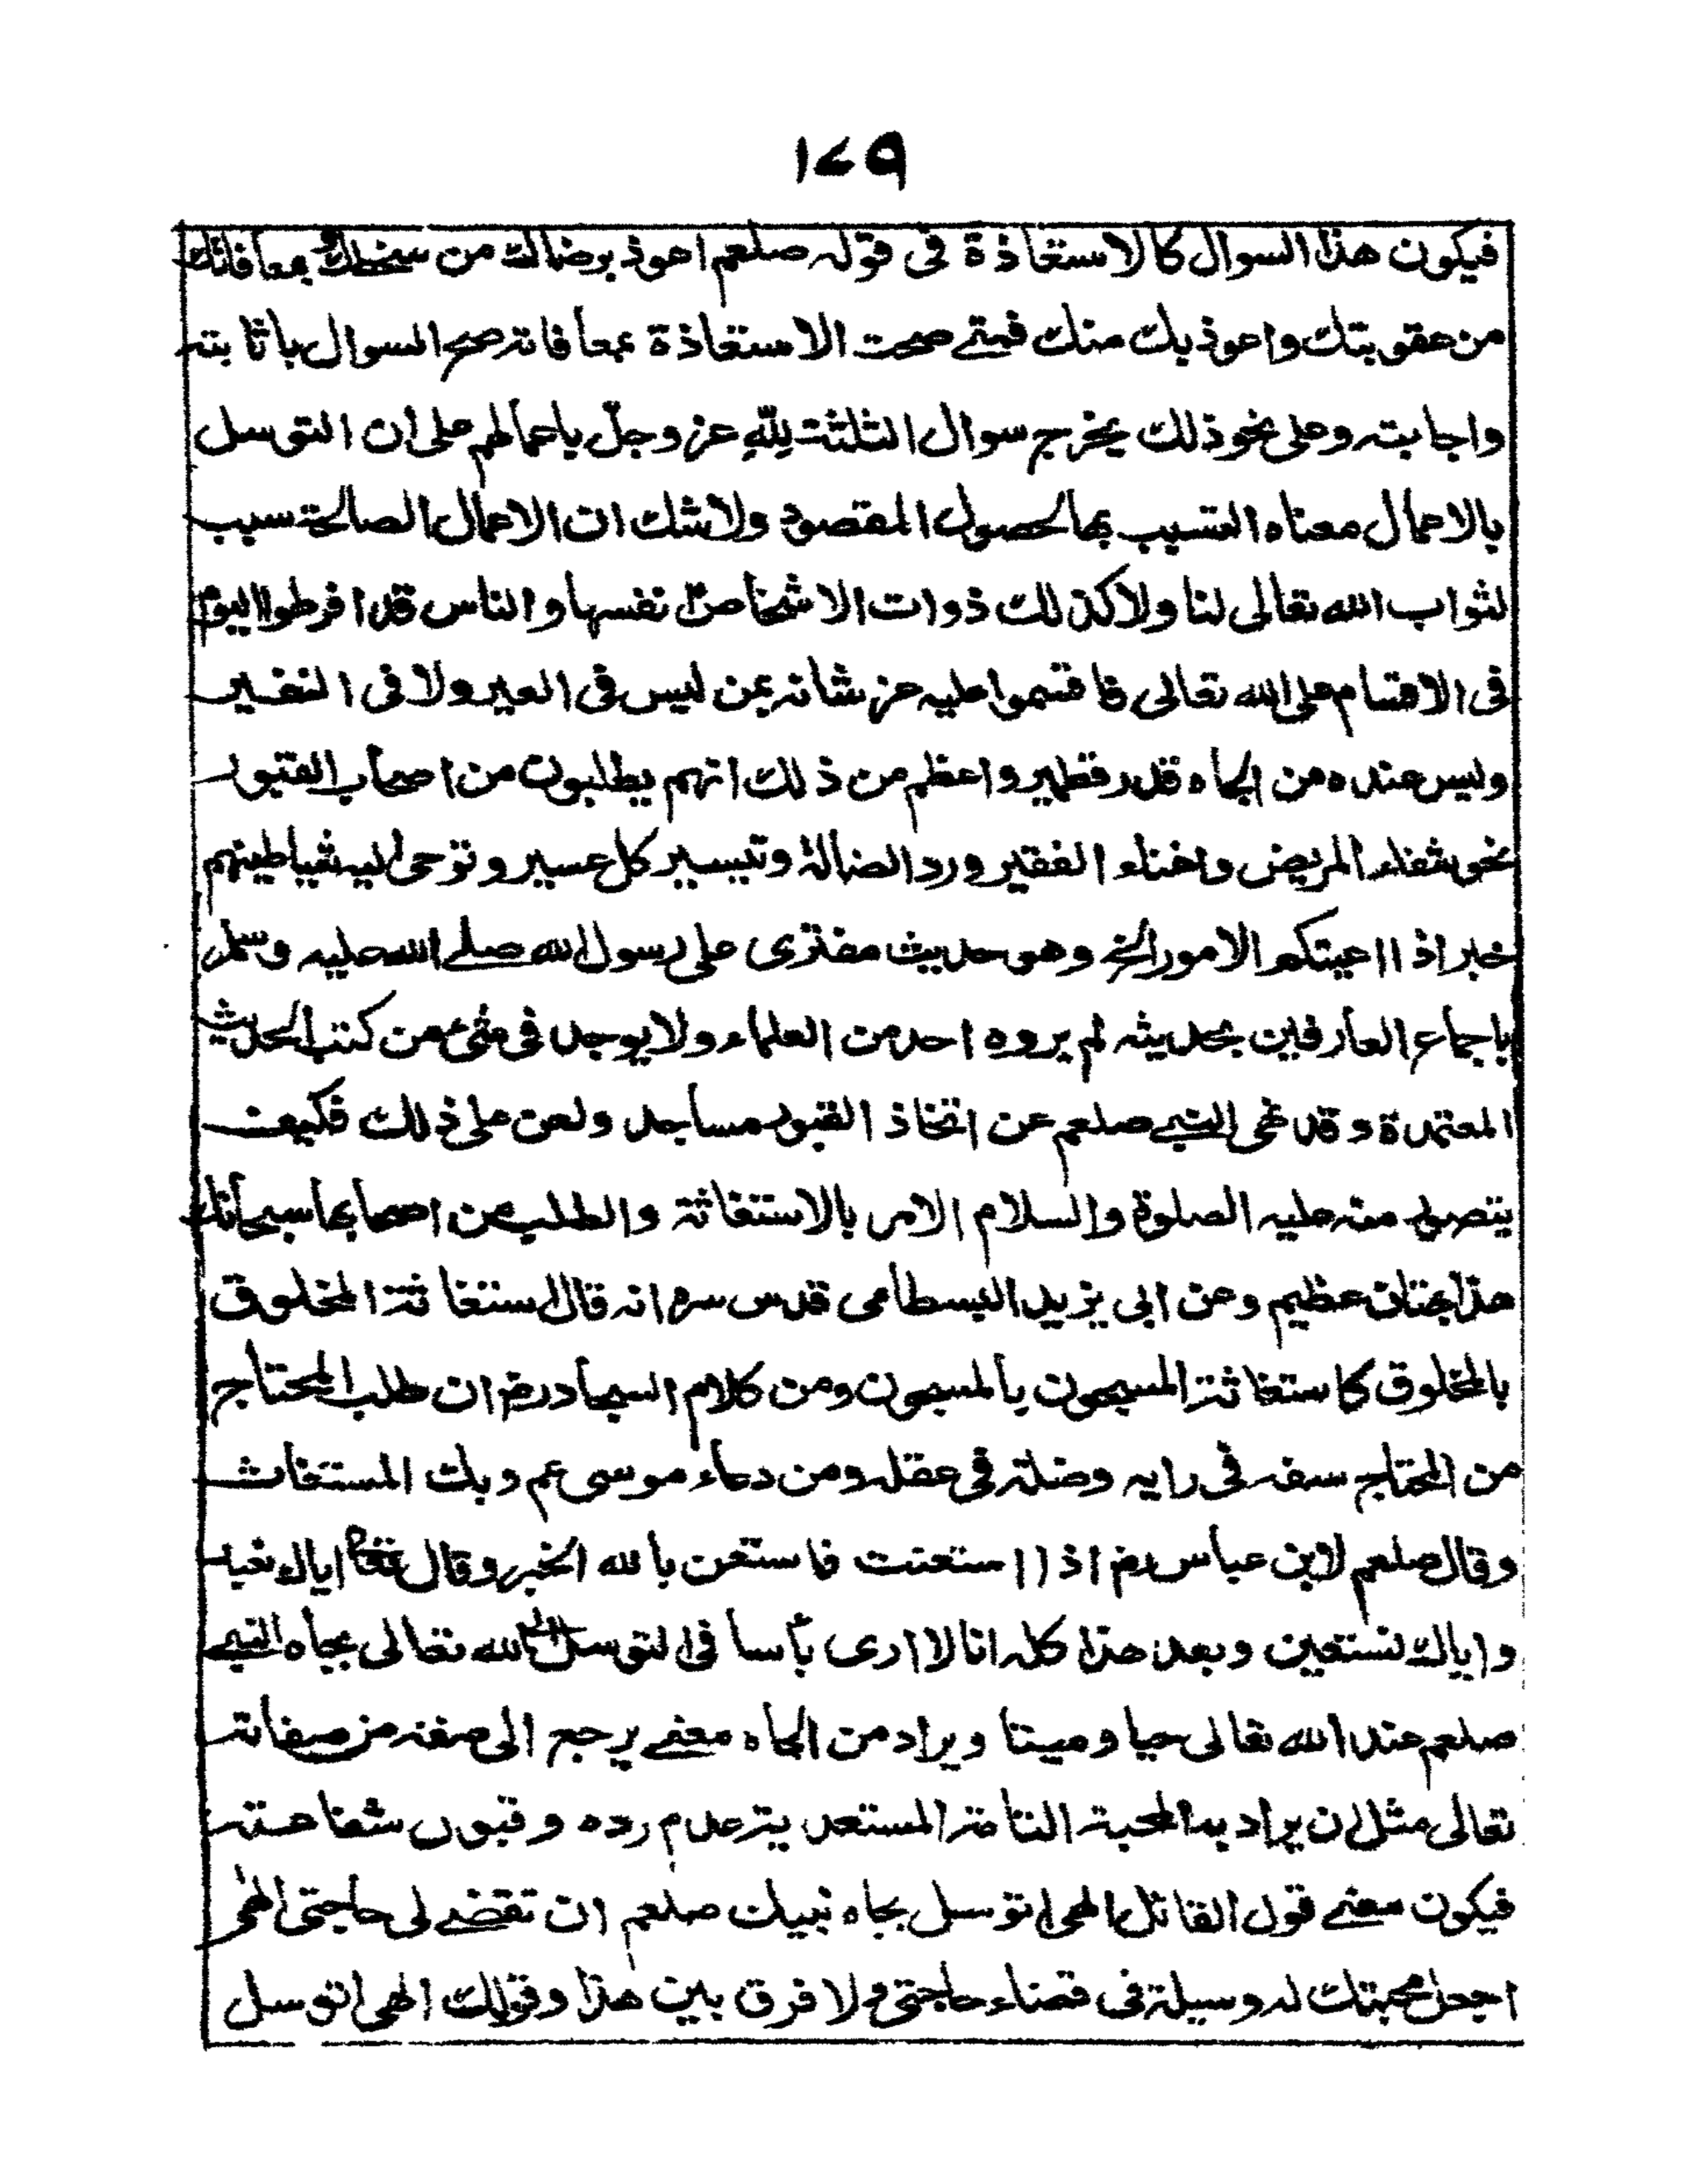 ۱۷۹
فيكون هذا السوال كالاستعاذة فى قوله صلعم اعوذ برضاك من سخطك و بمعافاتك
من عقوبتك واعوذ بك منك فمتے صحت الاستعاذة بمعافاته صح السوال باثابته
واجابته وعلى نحو ذلك يخرج سوال الثلثة لِلّٰهِ عز وجلّ باعمالهم على ان التوسل
بالاعمال معناه التسبب بها لحصول المقصود ولاشك ان الاعمال الصالحة سبب
لثواب الله تعالى لنا ولا كذلك ذوات الاشخاص نفسها والناس قد افرطوا اليوم
فى الاقسام على الله تعالى فاقسموا عليه عز شانه بمن ليس فى العير ولا فى النفير
وليس عنده من الجاه قدر قطمير واعظم من ذلك انهم يطلبون من اصحاب القبور
نحو شفاء المريض واغناء الفقير ورد الضالة وتيسير كل عسير و توحى اليه شياطينهم
خبر اذا اعيتكم الامور الخ وهو حديث مفترى على رسول الله صلے الله عليه وسلم
باجماع العارفين بحديثه لم يروه احد من العلماء ولا يوجد فى شئ من كتب الحديث
المعتمدة وقد نهى النبے صلعم عن اتخاذ القبور مساجد ولعن على ذلك فكيف
يتصور منه عليه الصلوة والسلام الامر بالاستغاثة والطلب من اصحابها سبحانك
هذا بهتان عظيم وعن ابى يزيد البسطامى قدس سره انه قال استغاثة المخلوق
بالمخلوق كاستغاثة المسجون بالمسجون ومن كلام السجاد رض ان طلب المحتاج
من المحتاج سفه فى رايه وضلة فى عقله ومن دعاء موسى عم وبك المستغاث
وقال صلعم لابن عباس رض اذا استعنت فاستعن بالله الخبر وقال تعا اياك نعبد
واياك نستعين وبعد هذا كله انا لا ارى بأسا فى التوسل الى الله تعالى بجاه النبے
صلعم عند الله تعالى حيا وميتا ويراد من الجاه معنے يرجع الى صفة من صفاته
تعالى مثل ان يراد به المحبة التامة المستعدية عدم رده وقبول شفاعته
فيكون معنے قول القائل الهى اتوسل بجاه نبيك صلعم ان تقضے لى حاجتى الهى
اجعل محبتك له وسيلة فى قضاء حاجتى ولا فرق بين هذا وقولك الهى اتوسل